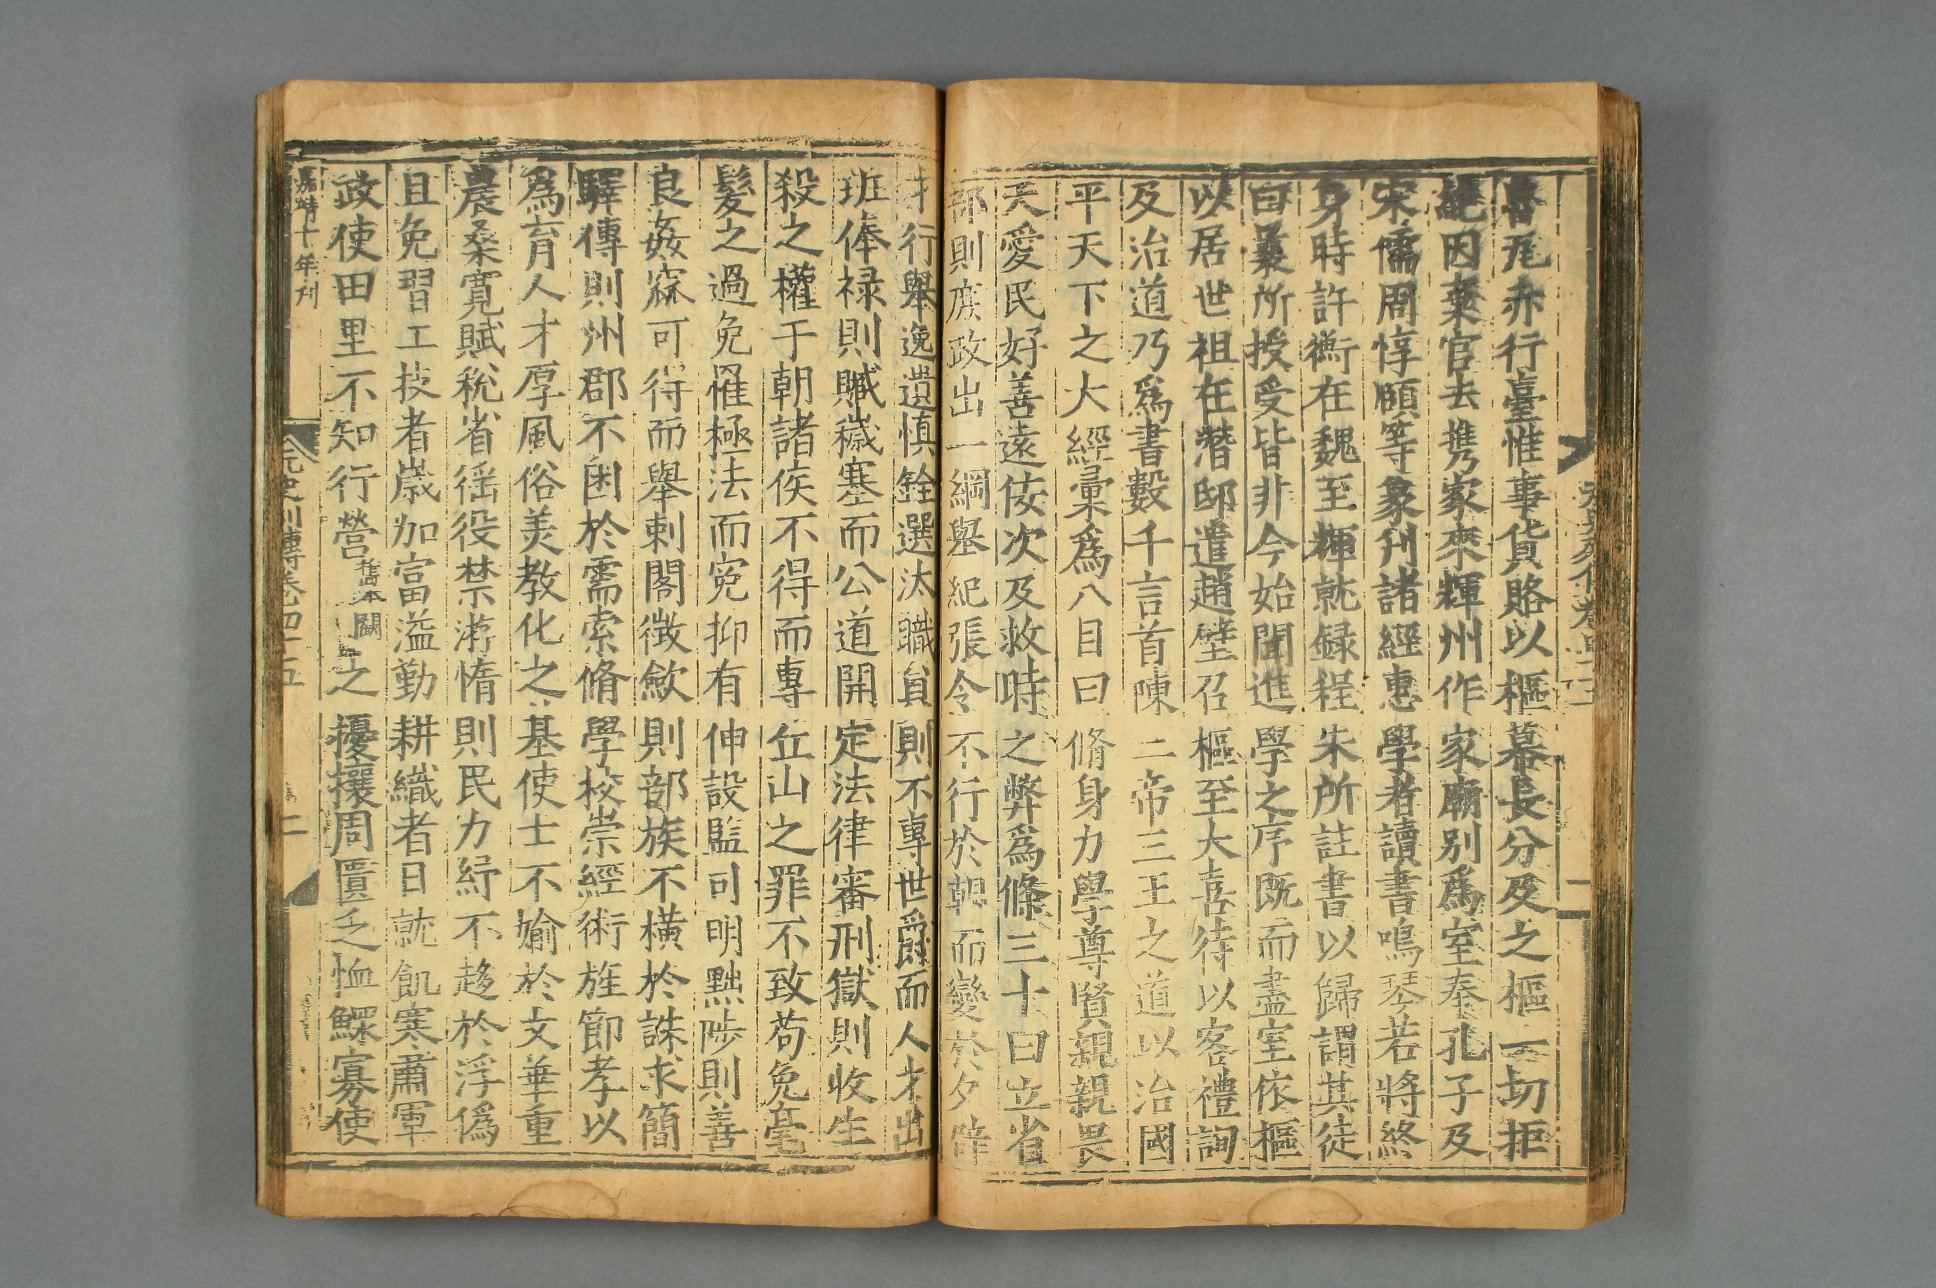 魯花赤行臺惟事貨賂以樞幕長分及之樞一切拒
絕因棄官去携家來輝州作家廟別爲室奉孔子及
宋儒周惇頤等象刋諸經惠學者讀書鳴琴若將終
身時許衡在魏至輝就録程朱所註書以歸謂其徒
曰曩所授受皆非今始聞進學之序旣而盡室依樞
以居世祖在潛邸遣趙璧召樞至大喜待以客禮詢
及治道乃爲書數千言首陳二帝三王之道以治國
平天下之大經彙爲八目曰脩身力學尊賢親親畏
天愛民好善遠佞次及救時之弊爲條三十曰立省
部則庶政出一綱舉紀張令不行於朝而變於夕辟
才行舉逸遺慎銓選汰職貟則不專世爵而人才出
班俸禄則贓穢塞而公道開定法律審刑獄則收生
殺之權于朝諸侯不得而專丘山之罪不致苟免毫
髮之過免罹極法而寃抑有伸設監司明黜陟則善
良姦窳可得而舉刺閣徴歛則部族不橫於誅求簡
驛傳則州郡不困於需索脩學校崇經術旌節孝以
爲育人才厚風俗美教化之基使士不媮於文華重
農桑寛賦稅省徭役禁游惰則民力紓不趍於浮僞
且免習工技者歲加富溢勤耕織者日就飢寒肅軍
政使田里不知行營舊本闕之擾攘周匱乏恤鰥寡使
嘉靖十年刋
元史列傳卷四十五
二